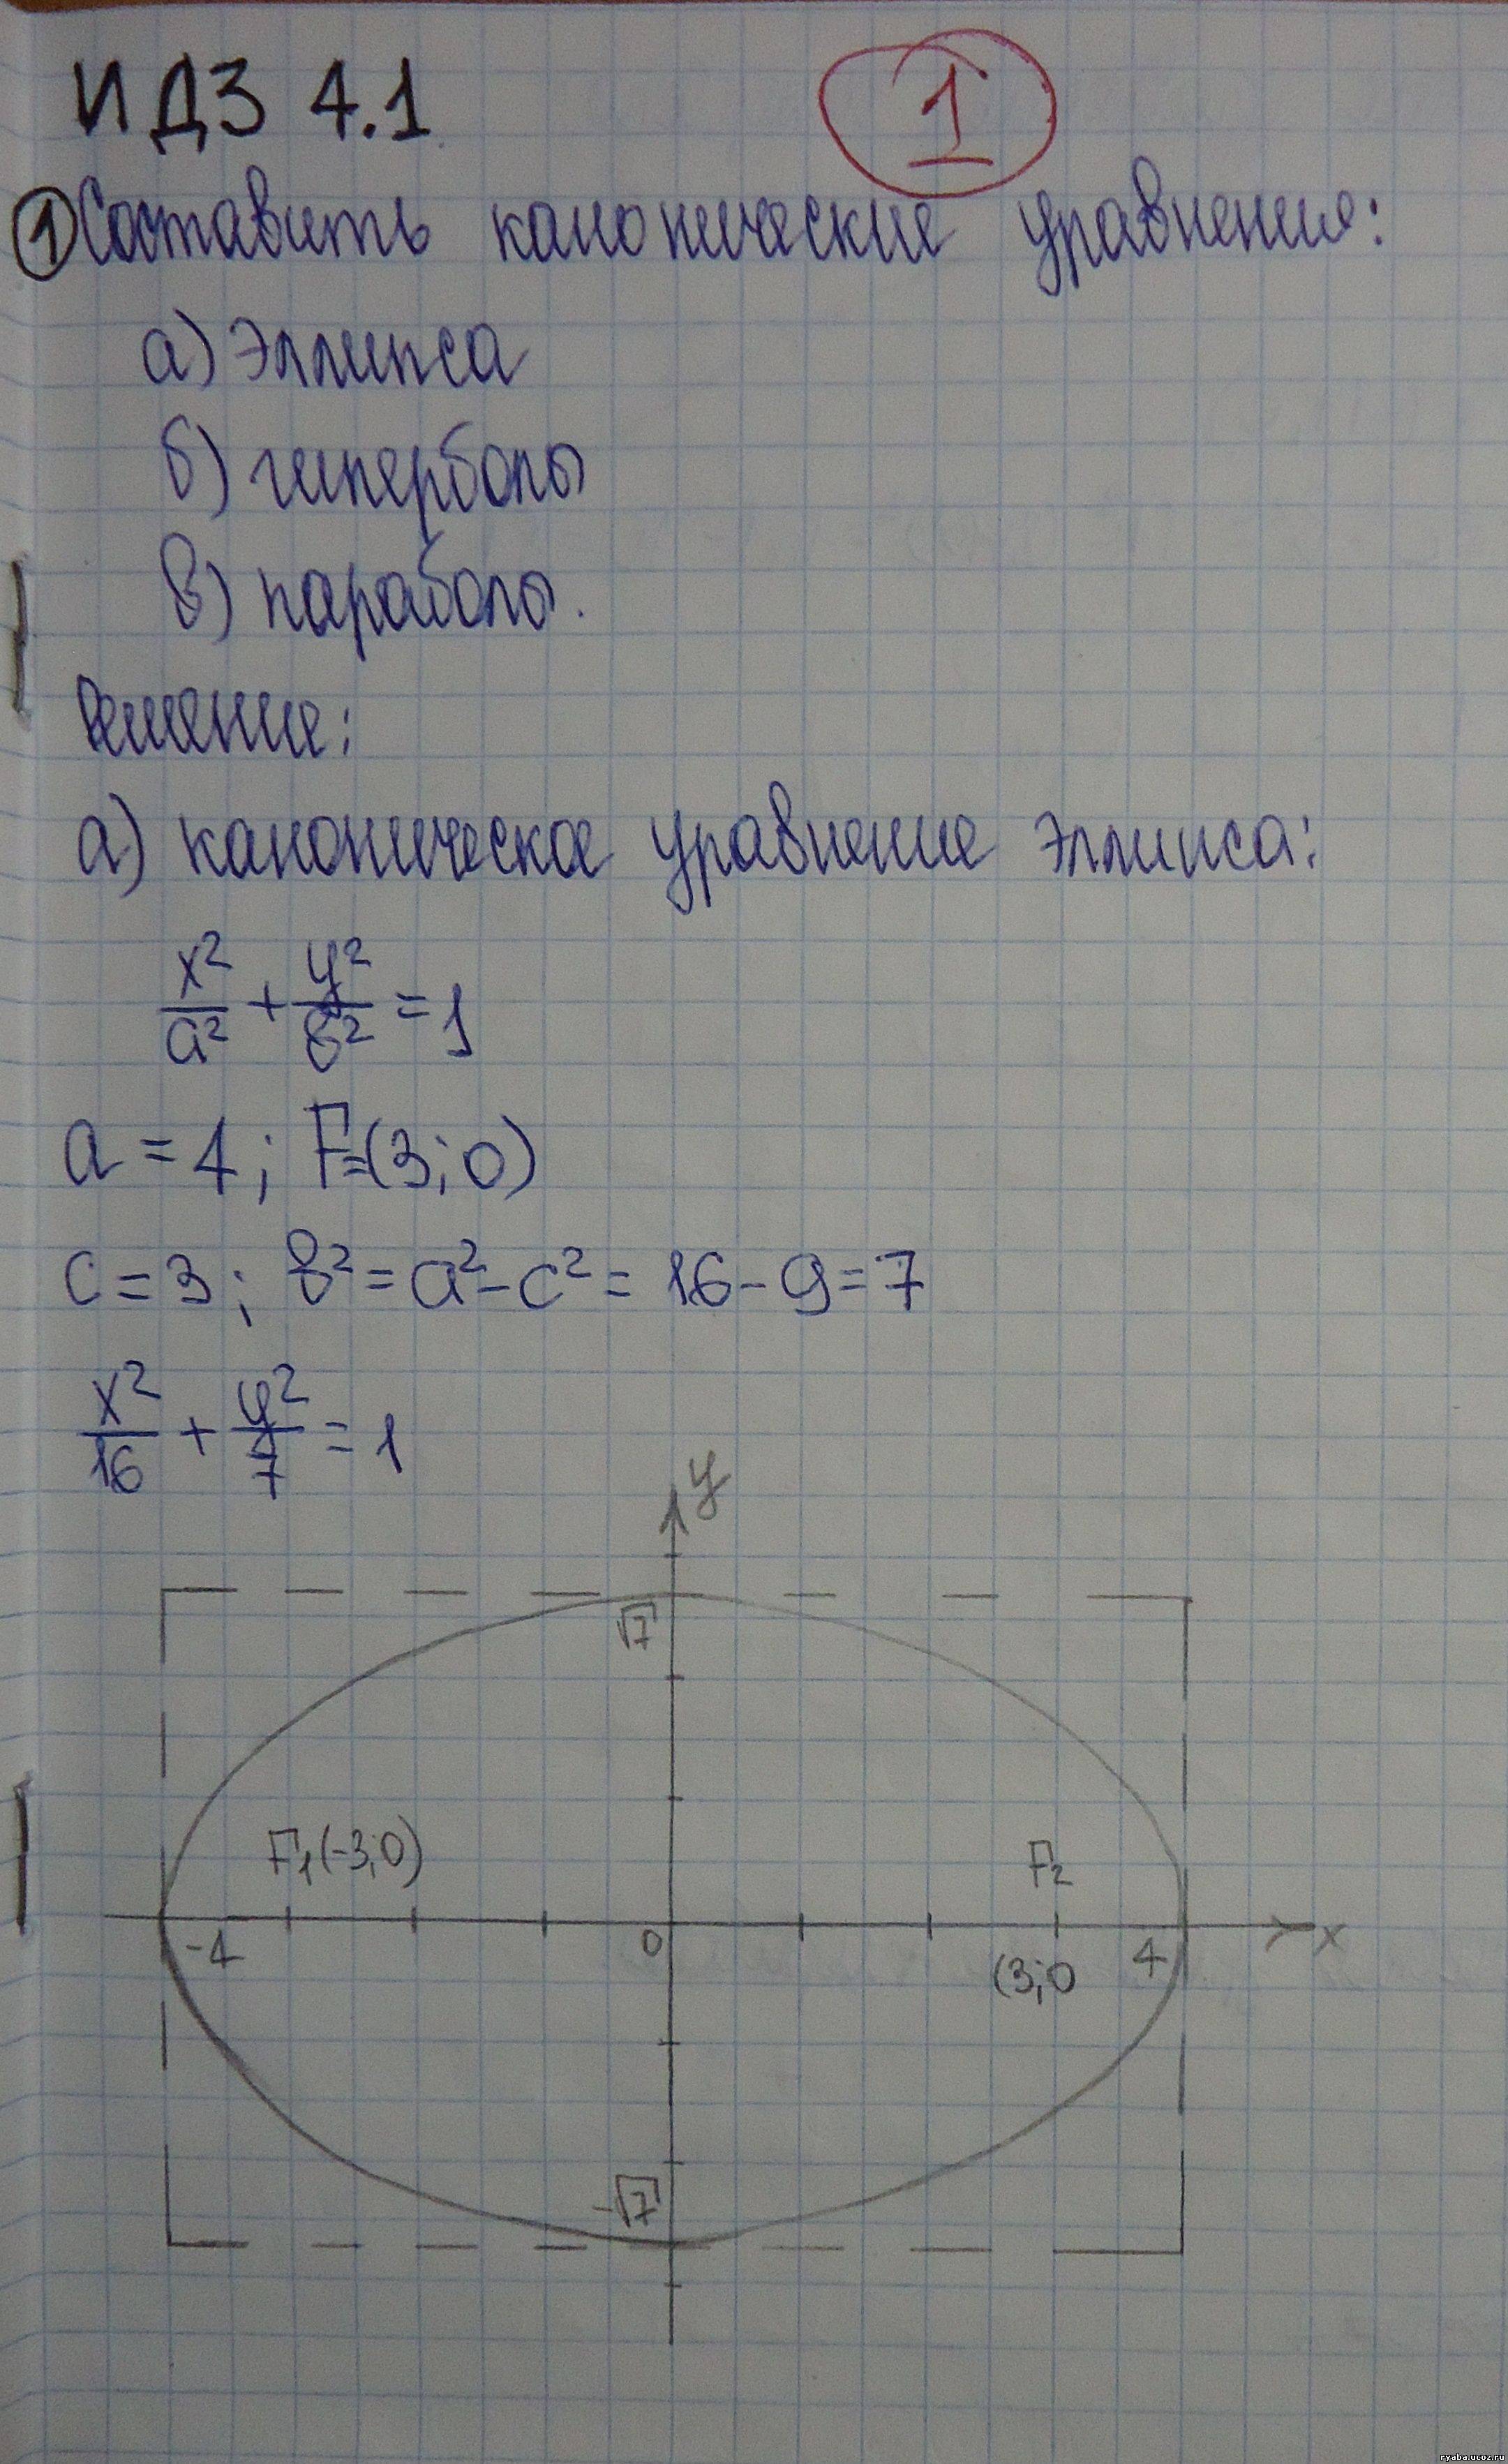 ИДЗ 4.1
1
① Составить канонические уравнения:
а) эллипса
б) гиперболы
в) параболы.
Решение:
а) каноническое уравнение эллипса:
x²/a² + y²/b² = 1
a = 4; F=(3;0)
c = 3; b² = a² - c² = 16 - 9 = 7
x²/16 + y²/7 = 1
y
√7
F₁(-3;0)
F₂
-4
0
(3;0
4
x
-√7
ryaba.ucoz.ru